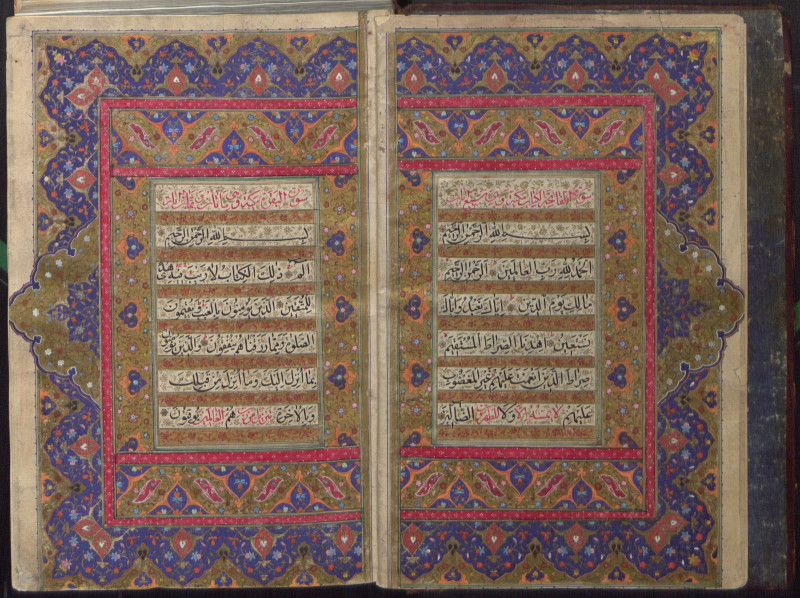 سورة الفاتحة الكتاب
بسم الله الرحمن الرحيم
الحمد لله رب العالمين الرحمن الرحيم
مالك يوم الدين اياك نعبد و اياك
نستعين اهدنا الصراط المستقيم
صراط الذين انعمت عليهم غير المغضوب
عليهم ولا الضالين
سورة البقرة
بسم الله الرحمن الرحيم
الم ذلك الكتاب لا ريب فيه هدى
للمتقين الذين يؤمنون بالغيب ويقيمون
الصلوة ومما رزقناهم ينفقون والذين يؤمنون
بما انزل اليك وما انزل من قبلك
وبالاخرة هم يوقنون